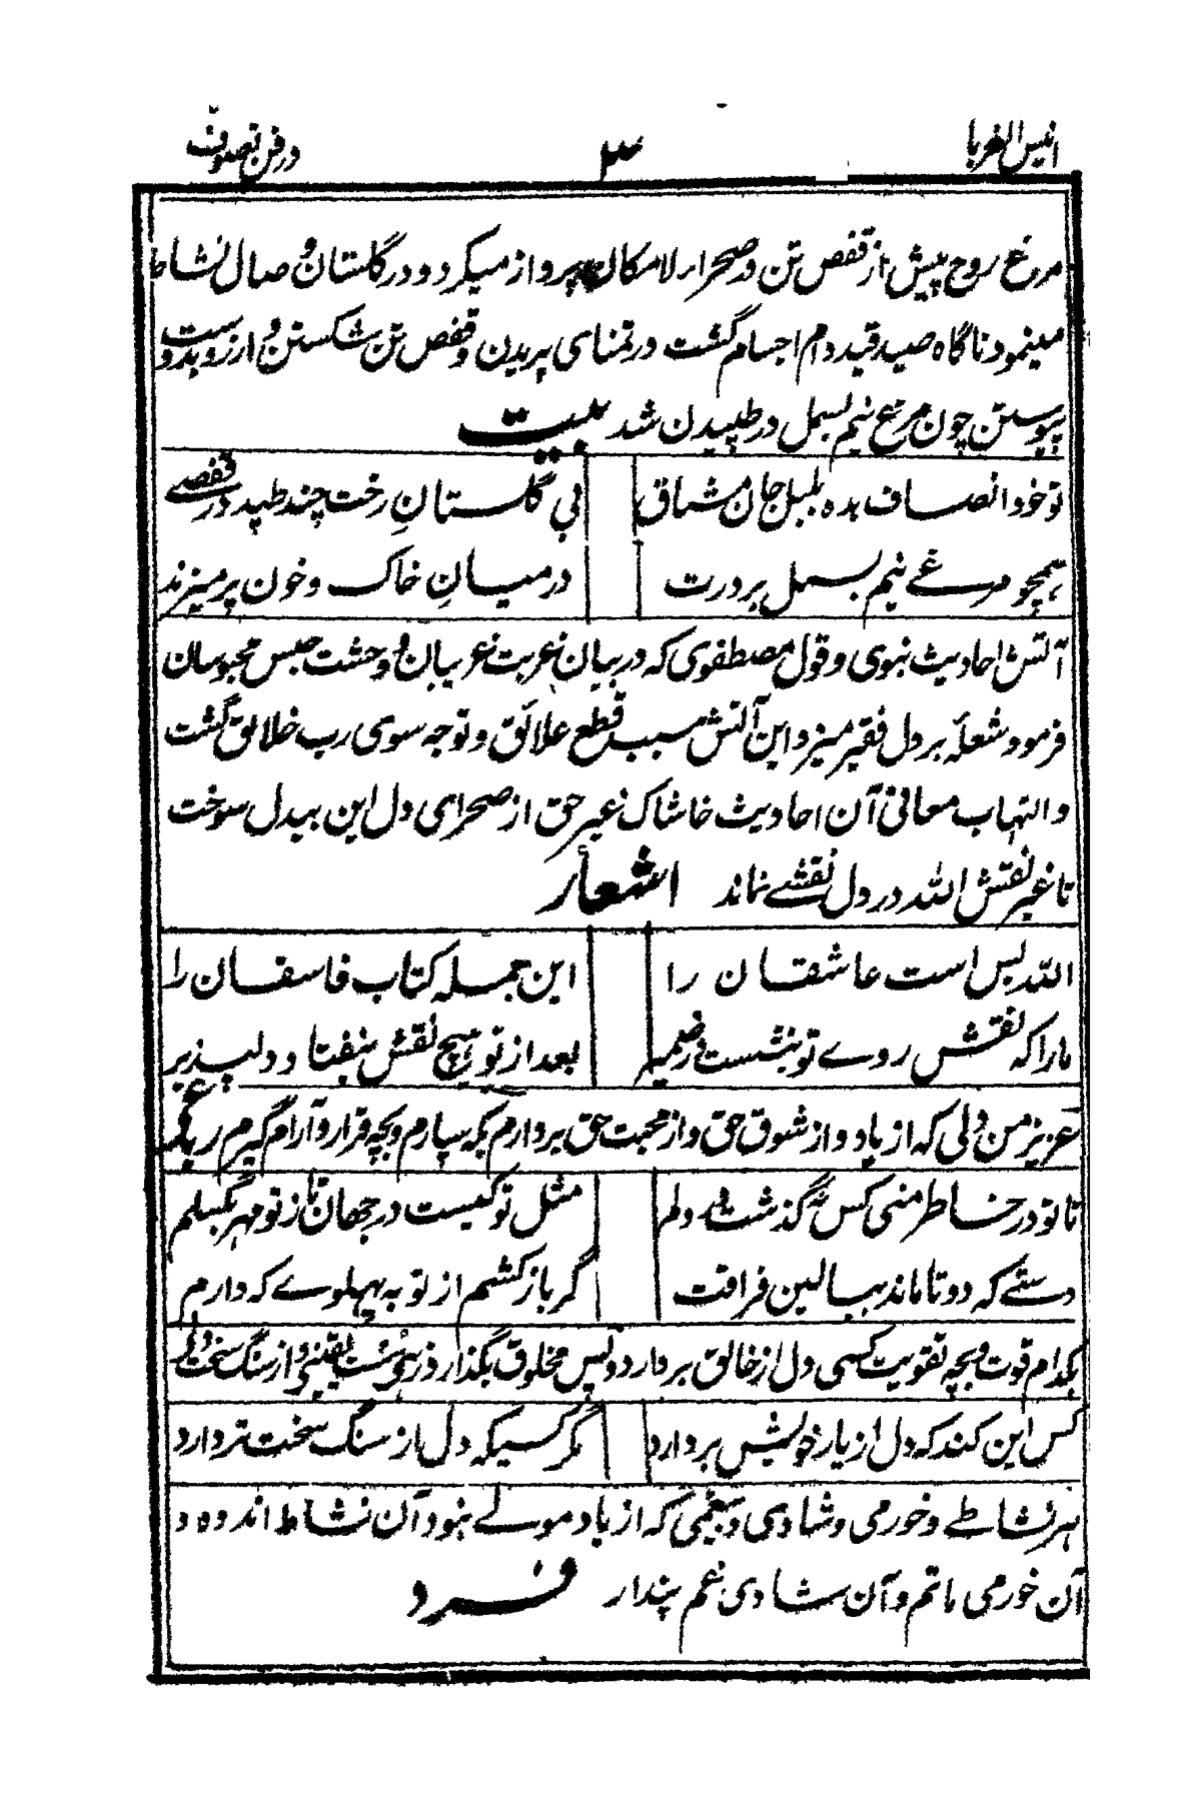 انیس الغربا ۳ در فن تصوف
مرغ روح پیش از قفص تن در صحراے لامکان پرواز میکرد و در گلستان وصال نشاط
مینمود ناگاه صید قید دام اجسام گشت در تمنای پریدن و قفص تن شکستن و از رو بدوست
پیوستن چون مرغ نیم بسمل در طپیدن شد بیت
تو خود انصاف بده بلبل جان مشتاق بی گلستانِ رخت چند طپد در قفصے
همچو مرغے نیم بسمل بر درت در میانِ خاک و خون پر میزند
آتش احادیث نبوی و قول مصطفوی که در بیان غربت غریبان و وحشت حبس محبوسان
فرمود شعلهٔ بر دل فقیر میزد و این آتش سبب قطع علائق و توجه سوی رب خلائق گشت
و التهاب معانی آن احادیث خاشاک غیر حق از صحرای دل این بیدل سوخت
تا غیر نقش الله در دل نقشے نماند اشعار
الله بس است عاشقان را این جمله کتاب فاسقان را
ما را که نقش روے تو بنشست در ضمیر بعد از تو هیچ نقش نیفتاد دلپذیر
عزیز من دلی که از یاد و از شوق حق و از محبت حق بردارم بکه سپارم و بچه قرار و آرام گیرم رباعی
تا تو در خاطر منی کس نگذشت در دلم مثل تو کیست در جهان تا ز تو مهر بگسلم
دستے که دو تا ماند ببالین فراقت گر باز کشم از تو به پهلوے که دارم
بکدام قوت و بچه تقویت کسی دل از خالق بردارد و پس مخلوق بگذارد زهی سست یقینی و از سنگ سخت دلی
کس این کند که دل از یار خویش بردارد مگر کسیکه دل از سنگ سخت تر دارد
هر نشاطے و خورمی و شادی و بیغمی که از یاد مولے نبود آن نشاط اندوه و
آن خورمی ماتم و آن شادی غم پندار فرد